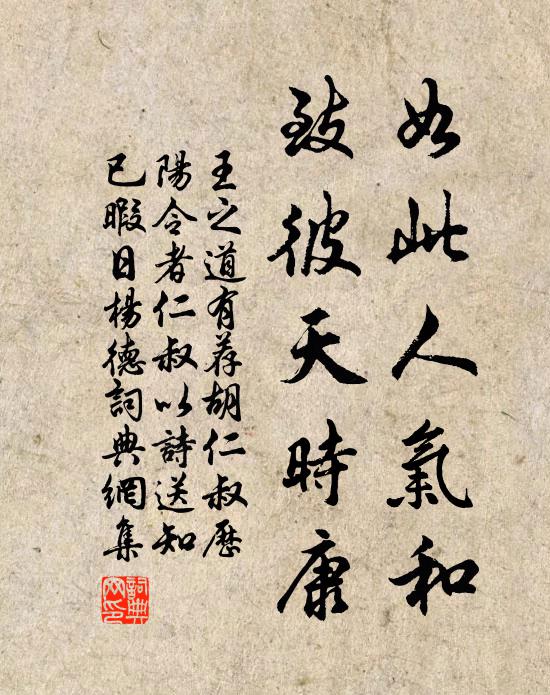 如此人氣和
致彼天時康
王之道有荐胡仁叔歷
陽令者仁叔以詩送知
已暇日楊德詞典網集
詞典網印